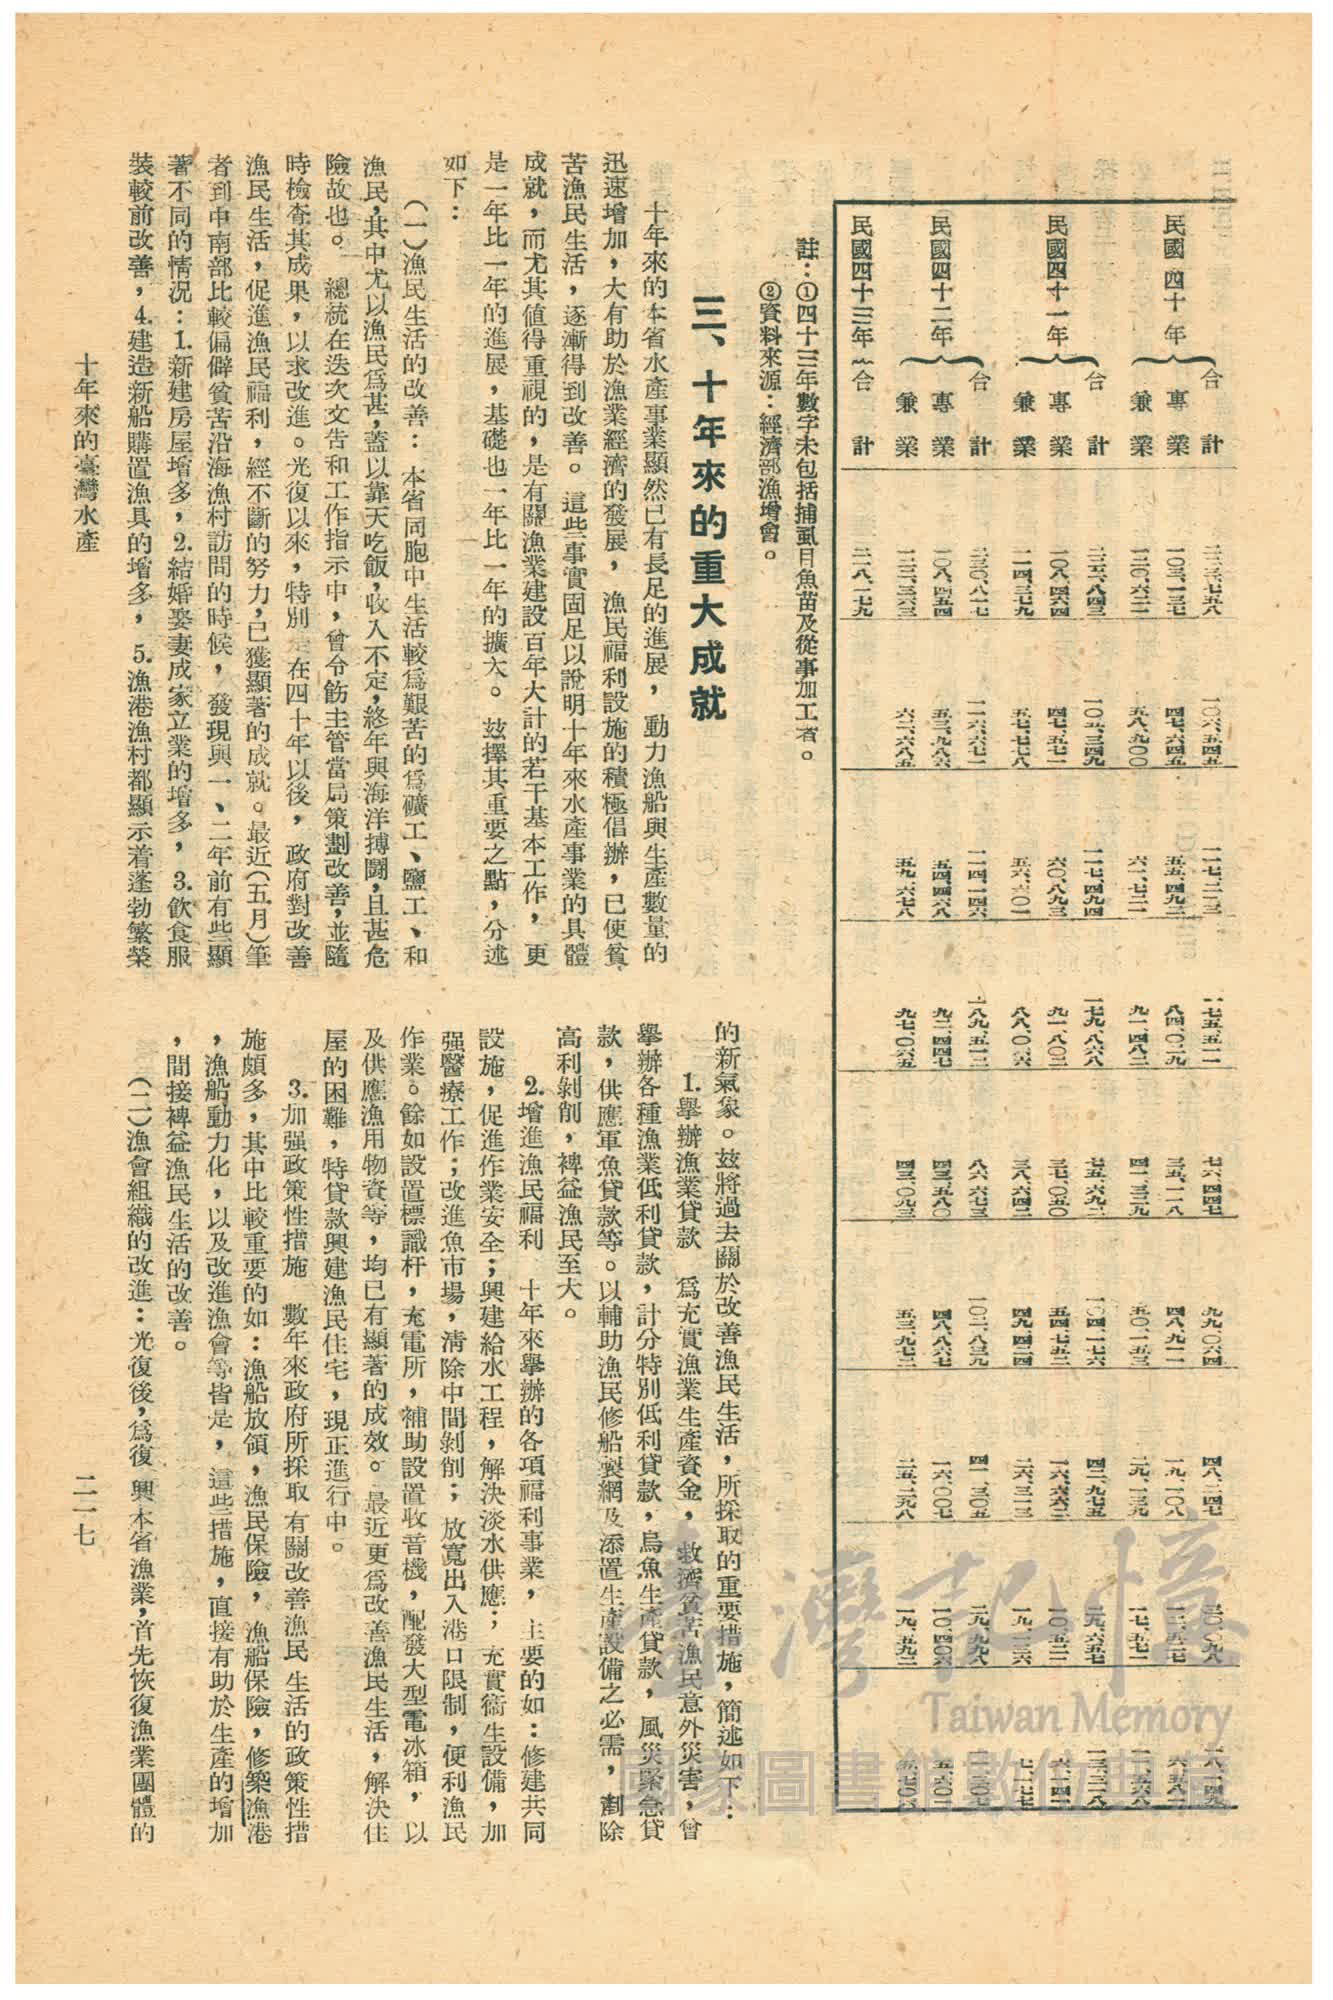 民國四十年 合計 二二三、七五八 一〇六、五四五 一一七、二一三 一七五、五一一 七六、四四七 九九、〇六四 四八、二四七 三〇、〇九八 一八、一四九
專業 一〇三、一三七 四七、六四五 五五、四九二 八四、〇二九 三五、一一八 四八、九一一 一九、一〇八 一二、五二七 六、五八一
兼業 一二〇、六二一 五八、九〇〇 六一、七二一 九一、四八二 四一、三二九 五〇、一五三 二九、一三九 一七、五七一 一一、五六八
民國四十一年 合計 二二二、八四三 一〇五、三四九 一一七、四九四 一七九、八六八 七五、六九二 一〇四、一七六 四二、九七五 二九、六五七 一三、三一八
專業 一〇八、四六四 四七、五七一 六〇、八九三 九一、八〇二 三七、〇五〇 五四、七五二 一六、六六二 一〇、五二一 六、一四一
兼業 一一四、三七九 五七、七七八 五六、六〇一 八八、〇六六 三八、六四二 四九、四二四 二六、三一三 一九、一三六 七、一七七
民國四十二年 合計 二三〇、八一七 一一六、六七一 一一四、一四六 一八九、五一二 八六、六七三 一〇二、八三九 四一、三〇五 二九、九九八 一一、三〇七
專業 一〇八、四五四 五三、九八六 五四、四六八 九二、四四七 四三、五八〇 四八、八六七 一六、〇〇七 一〇、四〇六 五、六〇一
兼業 一二二、三六三 六二、六八五 五九、六七八 九七、〇六五 四三、〇九三 五三、九七二 二五、二九八 一九、五九二 五、七〇六
民國四十三年 合計 二一八、一七九
註：①四十三年數字未包括捕虱目魚苗及從事加工者。
②資料來源：經濟部漁增會。
三、十年來的重大成就
十年來的本省水產事業顯然已有長足的進展，動力漁船與生產數量的
迅速增加，大有助於漁業經濟的發展，漁民福利設施的積極倡辦，已使貧
苦漁民生活，逐漸得到改善。這些事實固足以說明十年來水產事業的具體
成就，而尤其值得重視的，是有關漁業建設百年大計的若干基本工作，更
是一年比一年的進展，基礎也一年比一年的擴大。玆擇其重要之點，分述
如下：
（一）漁民生活的改善：本省同胞中生活較爲艱苦的爲礦工、鹽工、和
漁民，其中尤以漁民爲甚，蓋以靠天吃飯，收入不定，終年與海洋搏鬪，且甚危
險故也。　總統在迭次文告和工作指示中，曾令飭主管當局策劃改善，並隨
時檢查其成果，以求改進。光復以來，特別是在四十年以後，政府對改善
漁民生活，促進漁民福利，經不斷的努力，已獲顯著的成就。最近（五月）筆
者到中南部比較偏僻貧苦沿海漁村訪問的時候，發現與一、二年前有些顯
著不同的情況：1.新建房屋增多，2.結婚娶妻成家立業的增多，3.飲食服
裝較前改善，4.建造新船購置漁具的增多，5.漁港漁村都顯示着蓬勃繁榮
的新氣象。玆將過去關於改善漁民生活，所採取的重要措施，簡述如下：
1.舉辦漁業貸款　爲充實漁業生產資金，救濟貧苦漁民意外災害，曾
舉辦各種漁業低利貸款，計分特別低利貸款，烏魚生產貸款，風災緊急貸
款，供應軍魚貸款等。以輔助漁民修船製網及添置生產設備之必需，剷除
高利剝削，裨益漁民至大。
2.增進漁民福利　十年來舉辦的各項福利事業，主要的如：修建共同
設施，促進作業安全；興建給水工程，解決淡水供應；充實衞生設備，加
强醫療工作；改進魚市場，淸除中間剝削；放寬出入港口限制，便利漁民
作業。餘如設置標識杆，充電所，補助設置收音機，配發大型電冰箱，以
及供應漁用物資等，均已有顯著的成效。最近更爲改善漁民生活，解決住
屋的困難，特貸款興建漁民住宅，現正進行中。
3.加强政策性措施　數年來政府所採取有關改善漁民生活的政策性措
施頗多，其中比較重要的如：漁船放領，漁民保險，漁船保險，修築漁港
，漁船動力化，以及改進漁會等皆是，這些措施，直接有助於生產的增加
，間接裨益漁民生活的改善。
（二）漁會組織的改進：光復後，爲復興本省漁業，首先恢復漁業團體的
十年來的臺灣水產
二一七
臺灣記憶
Taiwan Memory
國家圖書館數位典藏